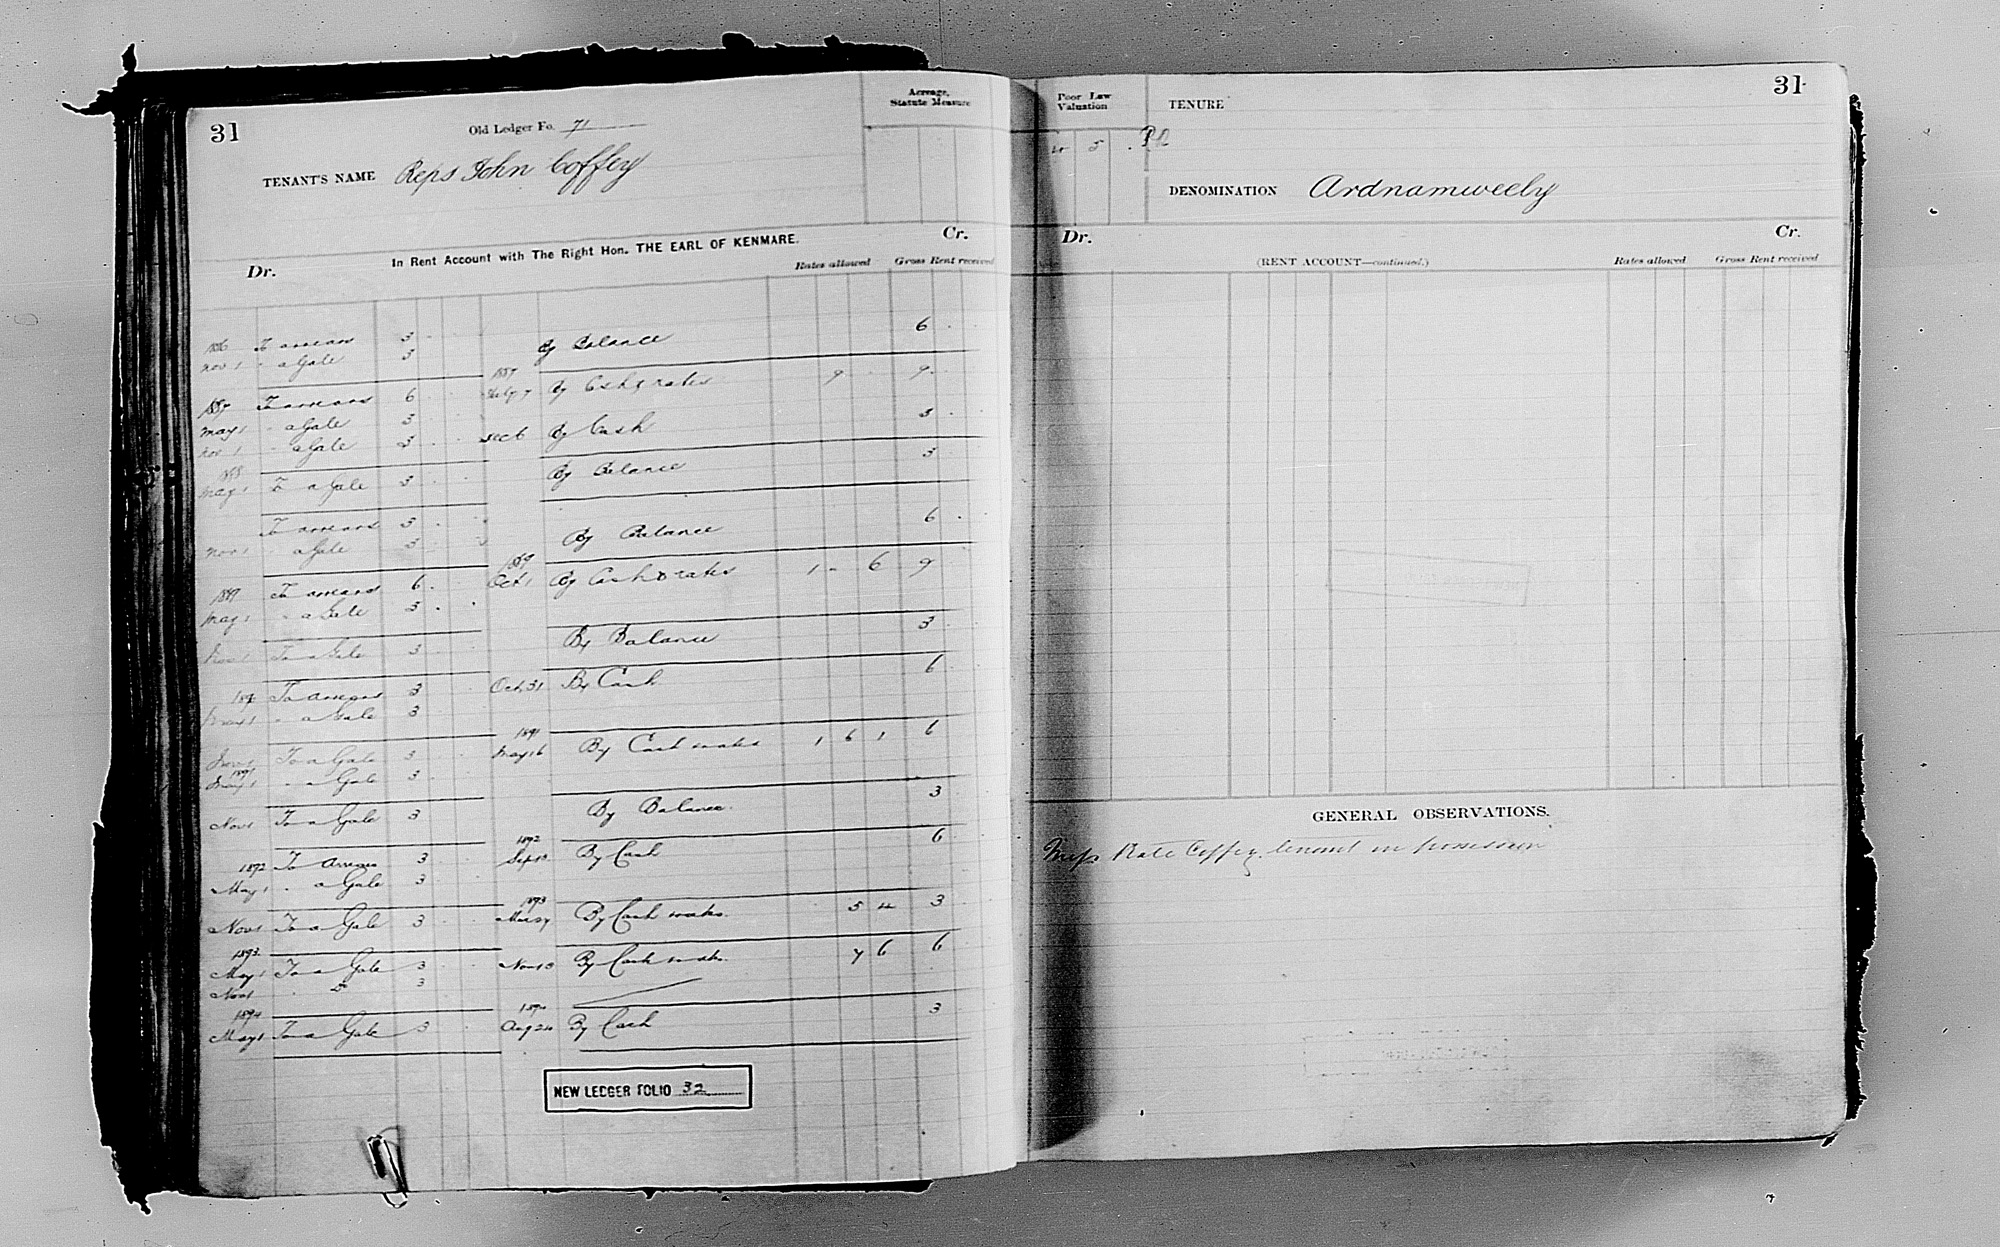 31
Old Ledger Fo. 71
Acreage,
Statute Measure
TENANT'S NAME Reps John Coffey
In Rent Account with The Right Hon. THE EARL OF KENMARE.
Dr. Cr.
Rates allowed Gross Rent received
1886 To arrears 3 By Balance 6
Nov 1 " a Gale 3
1887 To arrears 6 1887 By Cash & rates 9 9
May 1 " a Gale 3
Nov 1 " a Gale 3 Dec 6 By Cash 3
1888
May 1 To a Gale 3 By Balance 3
To arrears 3 By Balance 6
Nov 1 a Gale 3
1889 To arrears 6 1889 Oct 1 By Cash & rates 1 - 6 9
May 1 " a Gale 3
Nov 1 To a Gale 3 By Balance 3
To Arrears 3 Oct 31 By Cash 6
May 1 " a Gale 3
Nov 1 To a Gale 3 1891 May 16 By Cash & rates 1 6 1 6
1891
May 1 " a Gale 3
Nov 1 To a Gale 3 By Balance 3
1892 To Arrears 3 1892 Sept 13 By Cash 6
May 1 " a Gale 3
Nov 1 To a Gale 3 1893 By Cash & rates. 5 4 3
1893
May 1 To a Gale 3 Nov 13 By Cash & rates. 7 6 6
Nov 1 " Do 3
1894
May 1 To a Gale 3 1894 Aug 24 By Cash 3
NEW LEDGER FOLIO 32
31
Poor Law
Valuation
TENURE
5
DENOMINATION Ardnamweely
Dr. Cr.
(RENT ACCOUNT—continued.)
Rates allowed Gross Rent received
GENERAL OBSERVATIONS.
Miss Kate Coffey tenant in possession